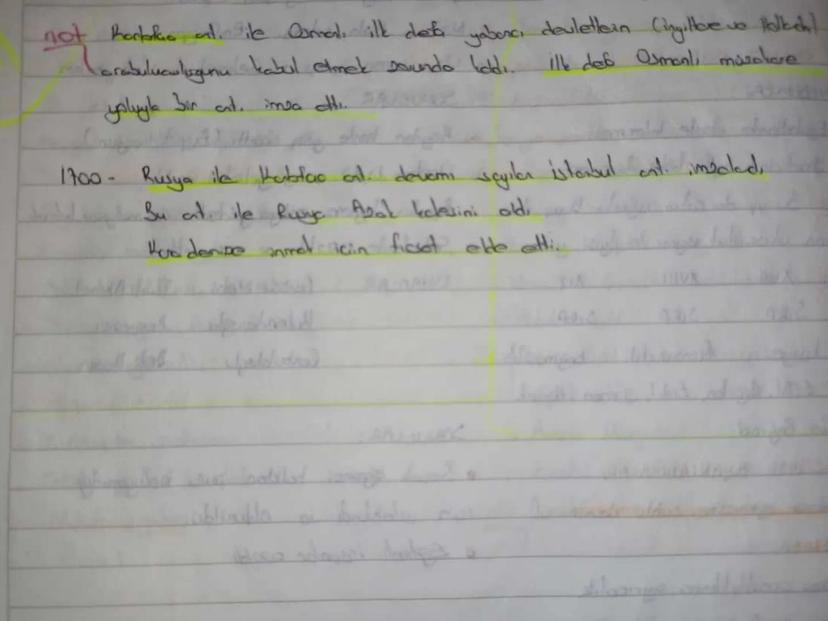 not Karlofça ant. ile Osmanlı ilk defa yabancı devletlerin (İngiltere ve Hollanda)
arabuluculuğunu kabul etmek zorunda kaldı. ilk defa Osmanlı müzakere
yoluyla bir ant. imza etti.
1700 - Rusya ile Karlofça ant. devamı sayılan İstanbul ant. imzaladı.
Bu ant. ile Rusya Azak kalesini aldı.
Karadenize inmek için fırsat elde etti.